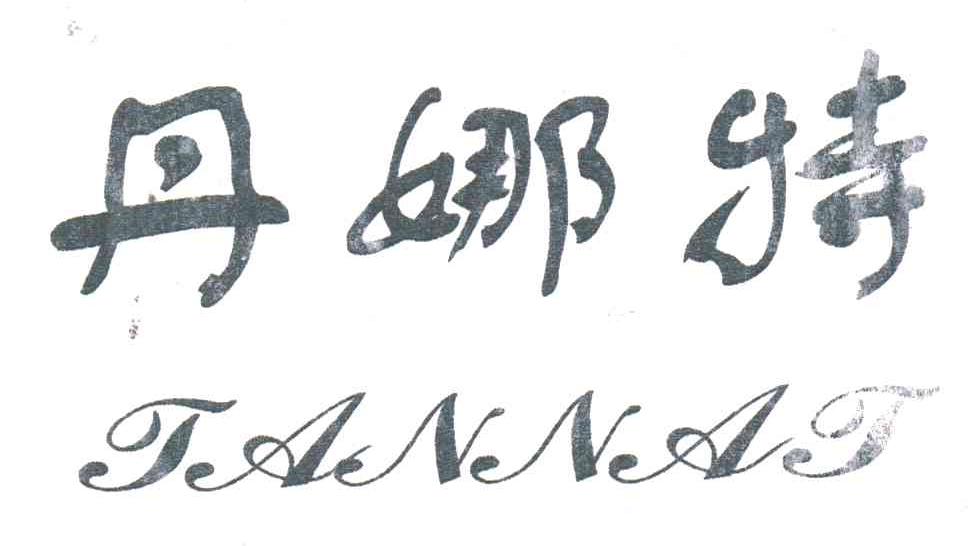 丹娜特
TANNAT